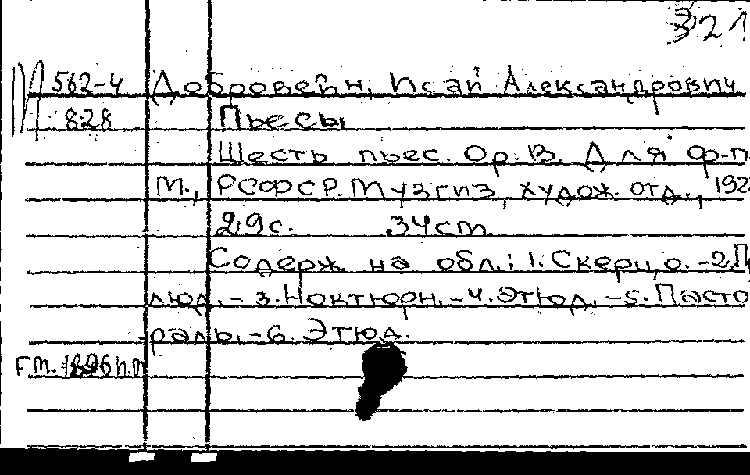 321
М 562-4 Добровейн, Исай Александрович
828 Пьесы
Шесть пьес. Ор. 13. Для ф-п
М., РСФСР. Музгиз, худож. отд., 192
29 с. 34 cm
Содерж. на обл.: 1. Скерцо. - 2. П
люд. - 3. Ноктюрн. - 4. Этюд. - 5. Пасто
раль. - 6. Этюд.